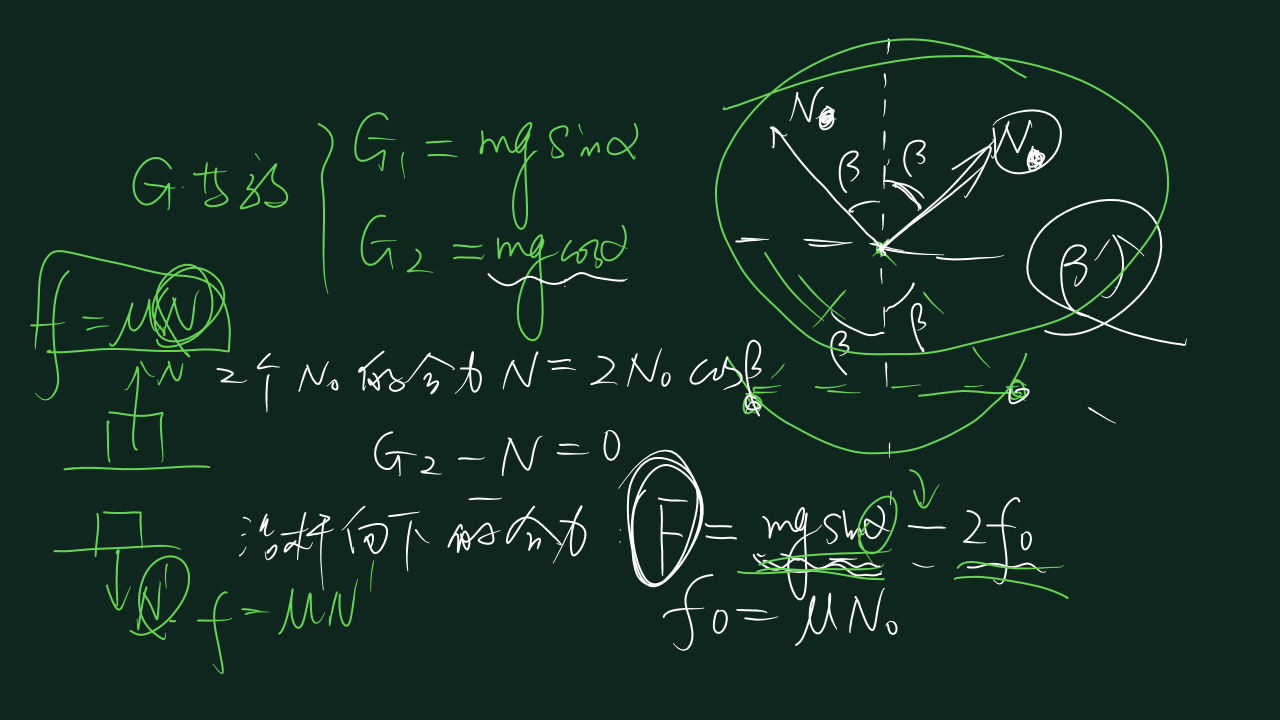 G.
G₁ = mg sinα
G₂ = mg cosα
f = μN
N
2个N₀的合力 N = 2N₀ cosβ
G₂ - N = 0
沿杆向下的合力: F = mg sinα - 2f₀
f₀ = μN₀
N'
f = μN'
N₀
N₀
β
β
β
β
β